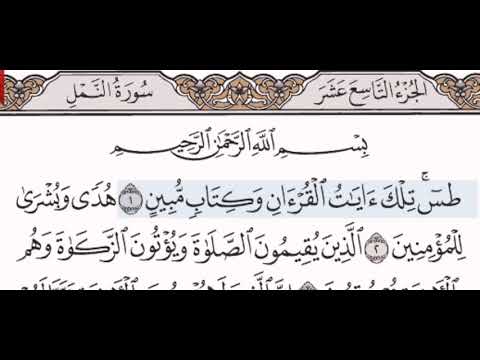 الجُزْءُ التَّاسِعَ عَشَرَ
سُورَةُ النَّمْلِ
بِسْمِ ٱللَّهِ ٱلرَّحْمَٰنِ ٱلرَّحِيمِ
طسٓ ۚ تِلْكَ ءَايَٰتُ ٱلْقُرْءَانِ وَكِتَابٍ مُّبِينٍ ١ هُدًى وَبُشْرَىٰ
لِلْمُؤْمِنِينَ ٢ ٱلَّذِينَ يُقِيمُونَ ٱلصَّلَوٰةَ وَيُؤْتُونَ ٱلزَّكَوٰةَ وَهُم